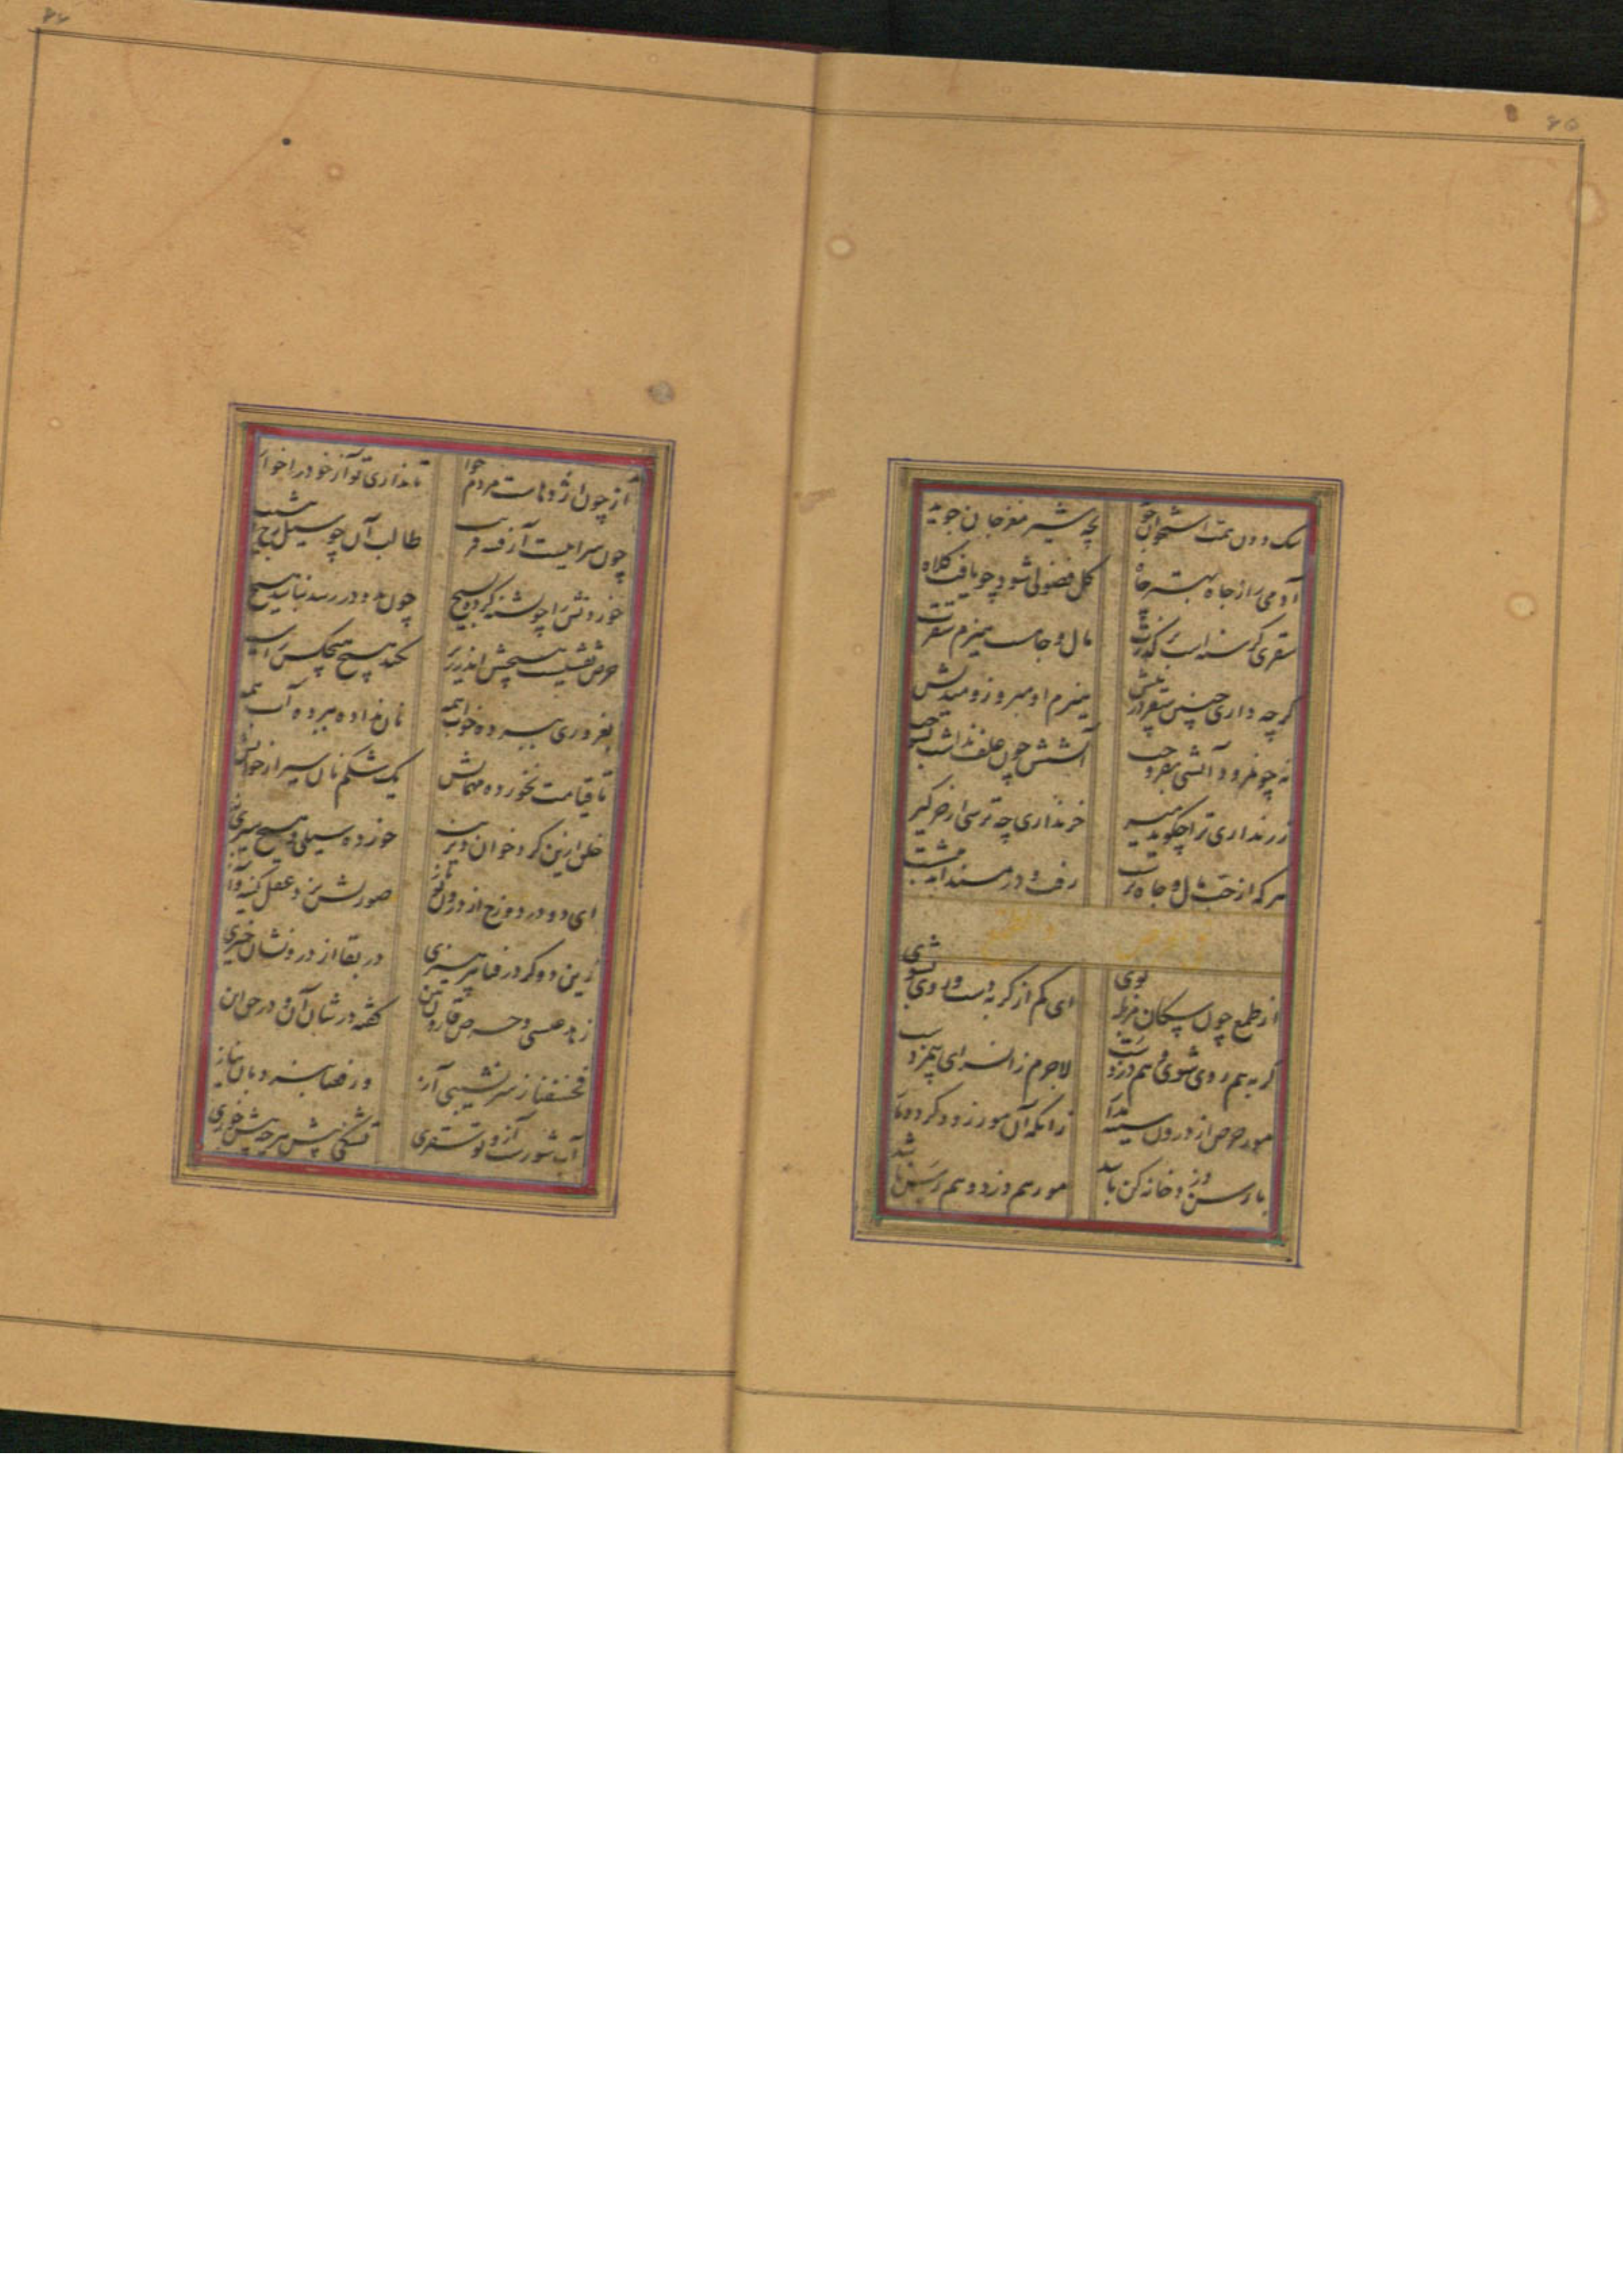 ۶۵
سگ دون همت استخوان جوید بچه شیر مغز جان جوید
آدمی را ز جاه بهتر چاه کل فضولی شود چو یافت کلاه
سقری گرسنه است مال و جاهست هیزم سقرت
گرچه داری چنین سقر در پیش هیزم او مبر وزو میندیش
نه چو نمرود آتشی بفروخت آتشش چون علف نداشت بسوخت
زر نداری ترا چگوید میر خر نداری چه ترسی از خرگیر
هر که از حب مال و جاه برست رفت و در مسند
از طمع چون سگان بوی ای کم از گربه دست و روی بشوی
گربه هم روی شوی و هم دزدست لاجرم زان سرای بیمزدست
مور حرص از درون سینه برآر زانکه آن مور زود گردد مار
با رسن دزد و خانه کن باشد مور هم دزد و هم رسن باشد
۶۶
آز چون اژدهاست مردم خوار تا نداری تو آز خود را خوار
چون سرابیست آز طالب آن چو سیل
خوردنش را چو تشنه کرده بسیج چون بدو در رسد نیابد هیچ
حرص نقشیست هیچش اندر زیر نکند هیچ هیچکس را سیر
بغروری ببرده خواب همه نان نداده ببرده آب همه
تا قیامت نخورده مهمانش یک شکم نان سیر از خوانش
خلق ازین گرد خوان خورده سیلی و هیچ سیری نه
ای دو در دوزخ از درون تو باز صورتش نزد عقل کینه و آز
زین دو گر در فنا بپرهیزی در بقا از درونشان خیزی
زهد عیسی و حرص قارون بین گفته در شان آن و در حق این
فخسفنا ز سرنشیبی آز ورفعنا
آب شورست آز و تو سفری تشنگی بیش هرچه بیش خوری